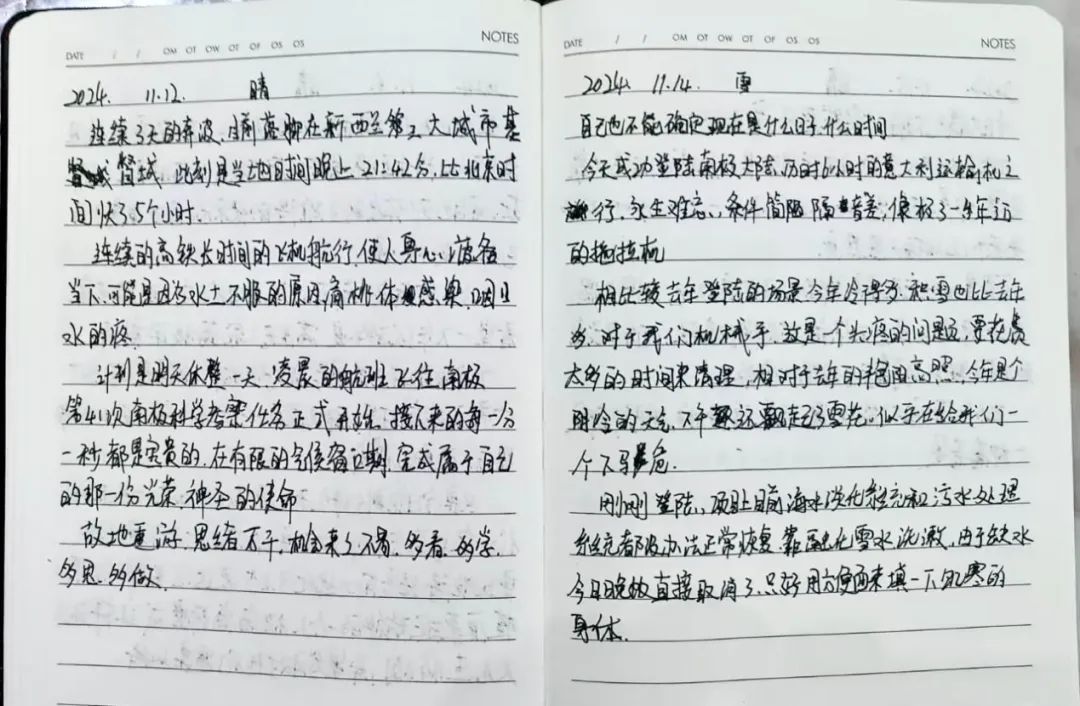 DATE / / OM OT OW OT OF OS OS NOTES
2024. 11.12. 晴
连续3天的奔波,目前落脚在新西兰第2大城市基
督城 此刻是当地时间晚上21:42分,比北京时
间快了5个小时.
连续的高铁长时间的飞机航行,使人身心疲惫.
当下,可能是因为水土不服的原因,扁桃体感染,咽口
水的疼.
计划是明天休整一天.凌晨的航班飞往南极
第41次南极科学考察任务正式开始.接下来的每一分
一秒都是宝贵的,在有限的窗口期,完成属于自己
的那一份光荣,神圣的使命
故地重游,思绪万千,机会来之不易,多看,多学,
多思,多做.
DATE / / OM OT OW OT OF OS OS NOTES
2024. 11.14. 雪
自己也不能确定现在是什么日子,什么时间
今天成功登陆南极大陆,历时6小时的意大利运输机之
行,永生难忘,条件简陋,隔音差,像极了一年迈
的拖拉机
相比较去年登陆的场景今年冷得多.积雪也比去年
多.对于我们机械手,这是一个头疼的问题,要花费
太多的时间来清理,相对于去年的艳阳高照,今年是个
阴冷的天气,下午还飘起了雪花,似乎在给我们一
个下马危.
刚刚登陆,项上目前海水淡化系统和污水处理
系统都没办法正常恢复.靠融化雪水洗漱,由于缺水
今日晚饭直接取消了.只好用方便面来填一下饥寒的
身体.